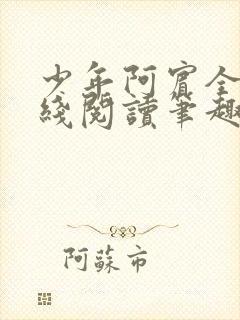 少年阿賓全
綫閱讀筆趣
阿蘇市